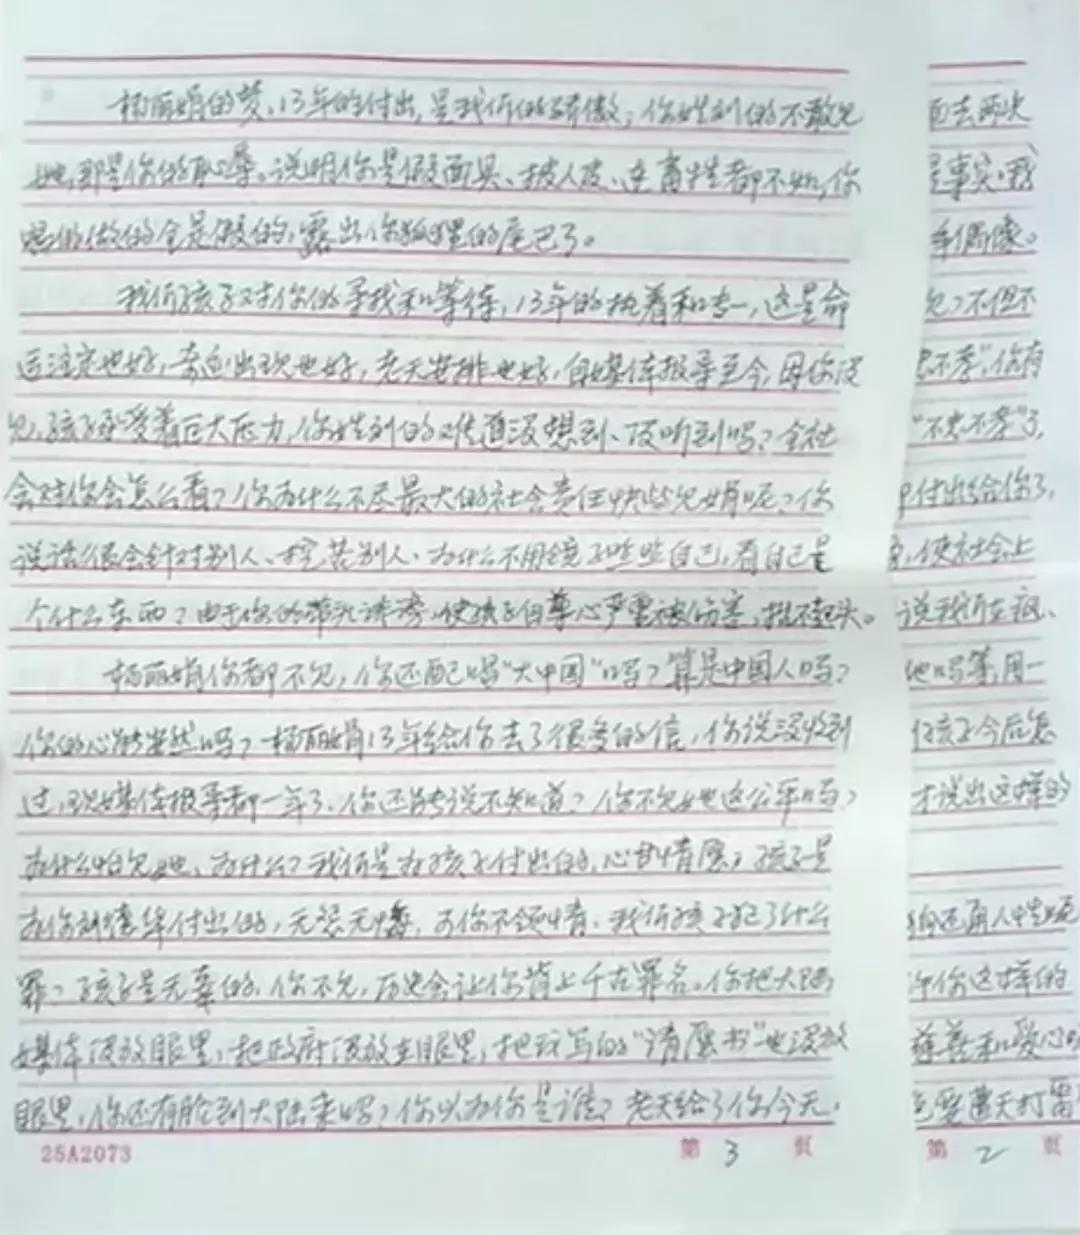 杨丽娟的梦、13年的付出,是我们的骄傲,你姓刘的不敢见
她,那是你的心辱。说明你是假面具、披人皮、连畜牲都不如,你
唱的做的全是假的,露出你狐狸的尾巴了。
我们孩子对你的寻找和等待,13年的执着和专一,这是命
运注定也好,奇迹出现也好,老天安排也好,自媒体报导至今,因你没
见,孩子承受着巨大压力,你姓刘的难道没想到、没听到吗?全社
会对你会怎么看?你为什么不尽最大的社会责任快些见娟呢?你
说话很会针对别人、挖苦别人、为什么不用镜子照照自己,看自己是
个什么东西?由于你的带头诽谤,使孩子自尊心严重被伤害,抬不起头。
杨丽娟你都不见,你还配唱“大中国”吗?算是中国人吗?
你的心能安然吗?杨丽娟13年给你去了很多的信,你说没收到
过,现媒体报导都一年了、你还能说不知道?你不见她这公平吗?
为什么怕见她,为什么?我们是为孩子付出的,心甘情愿,孩子是
为你刘德华付出的,无怨无悔,可你不领情,我们孩子犯了什么
罪?孩子是无辜的,你不见,历史会让你背上千古罪名。你把大陆
媒体没放眼里,把政府没放在眼里,把我写的“请愿书”也没放
眼里,你还有脸到大陆来吗?你以为你是谁?老天给了你今天,
25A2073
第 3 页
面去两次
是事实,我
年偶像。
见?不但不
忠不孝”你有
“不忠不孝”了,
付出给你了,
使社会上
说我们在疯、
他吗等,用一
孩子今后怎
才说出这样的
你还有人性呢
许你这样的
慈善和爱心
要遭天打雷
第 2 页